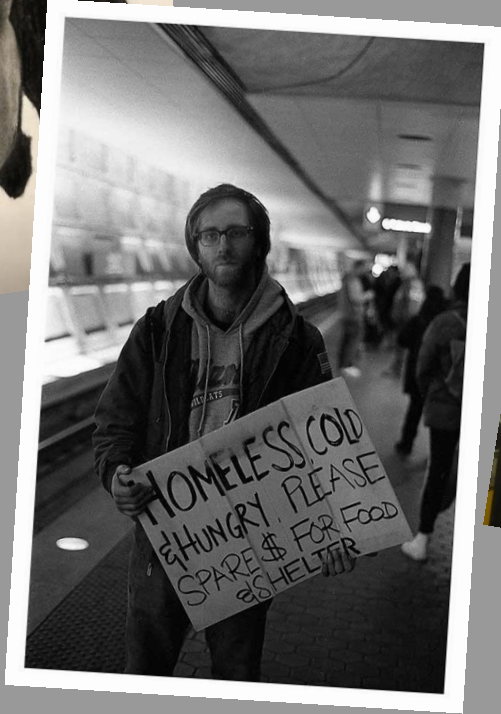 WILDCATS
HOMELESS, COLD
& HUNGRY. PLEASE
SPARE $ FOR FOOD
& SHELTER